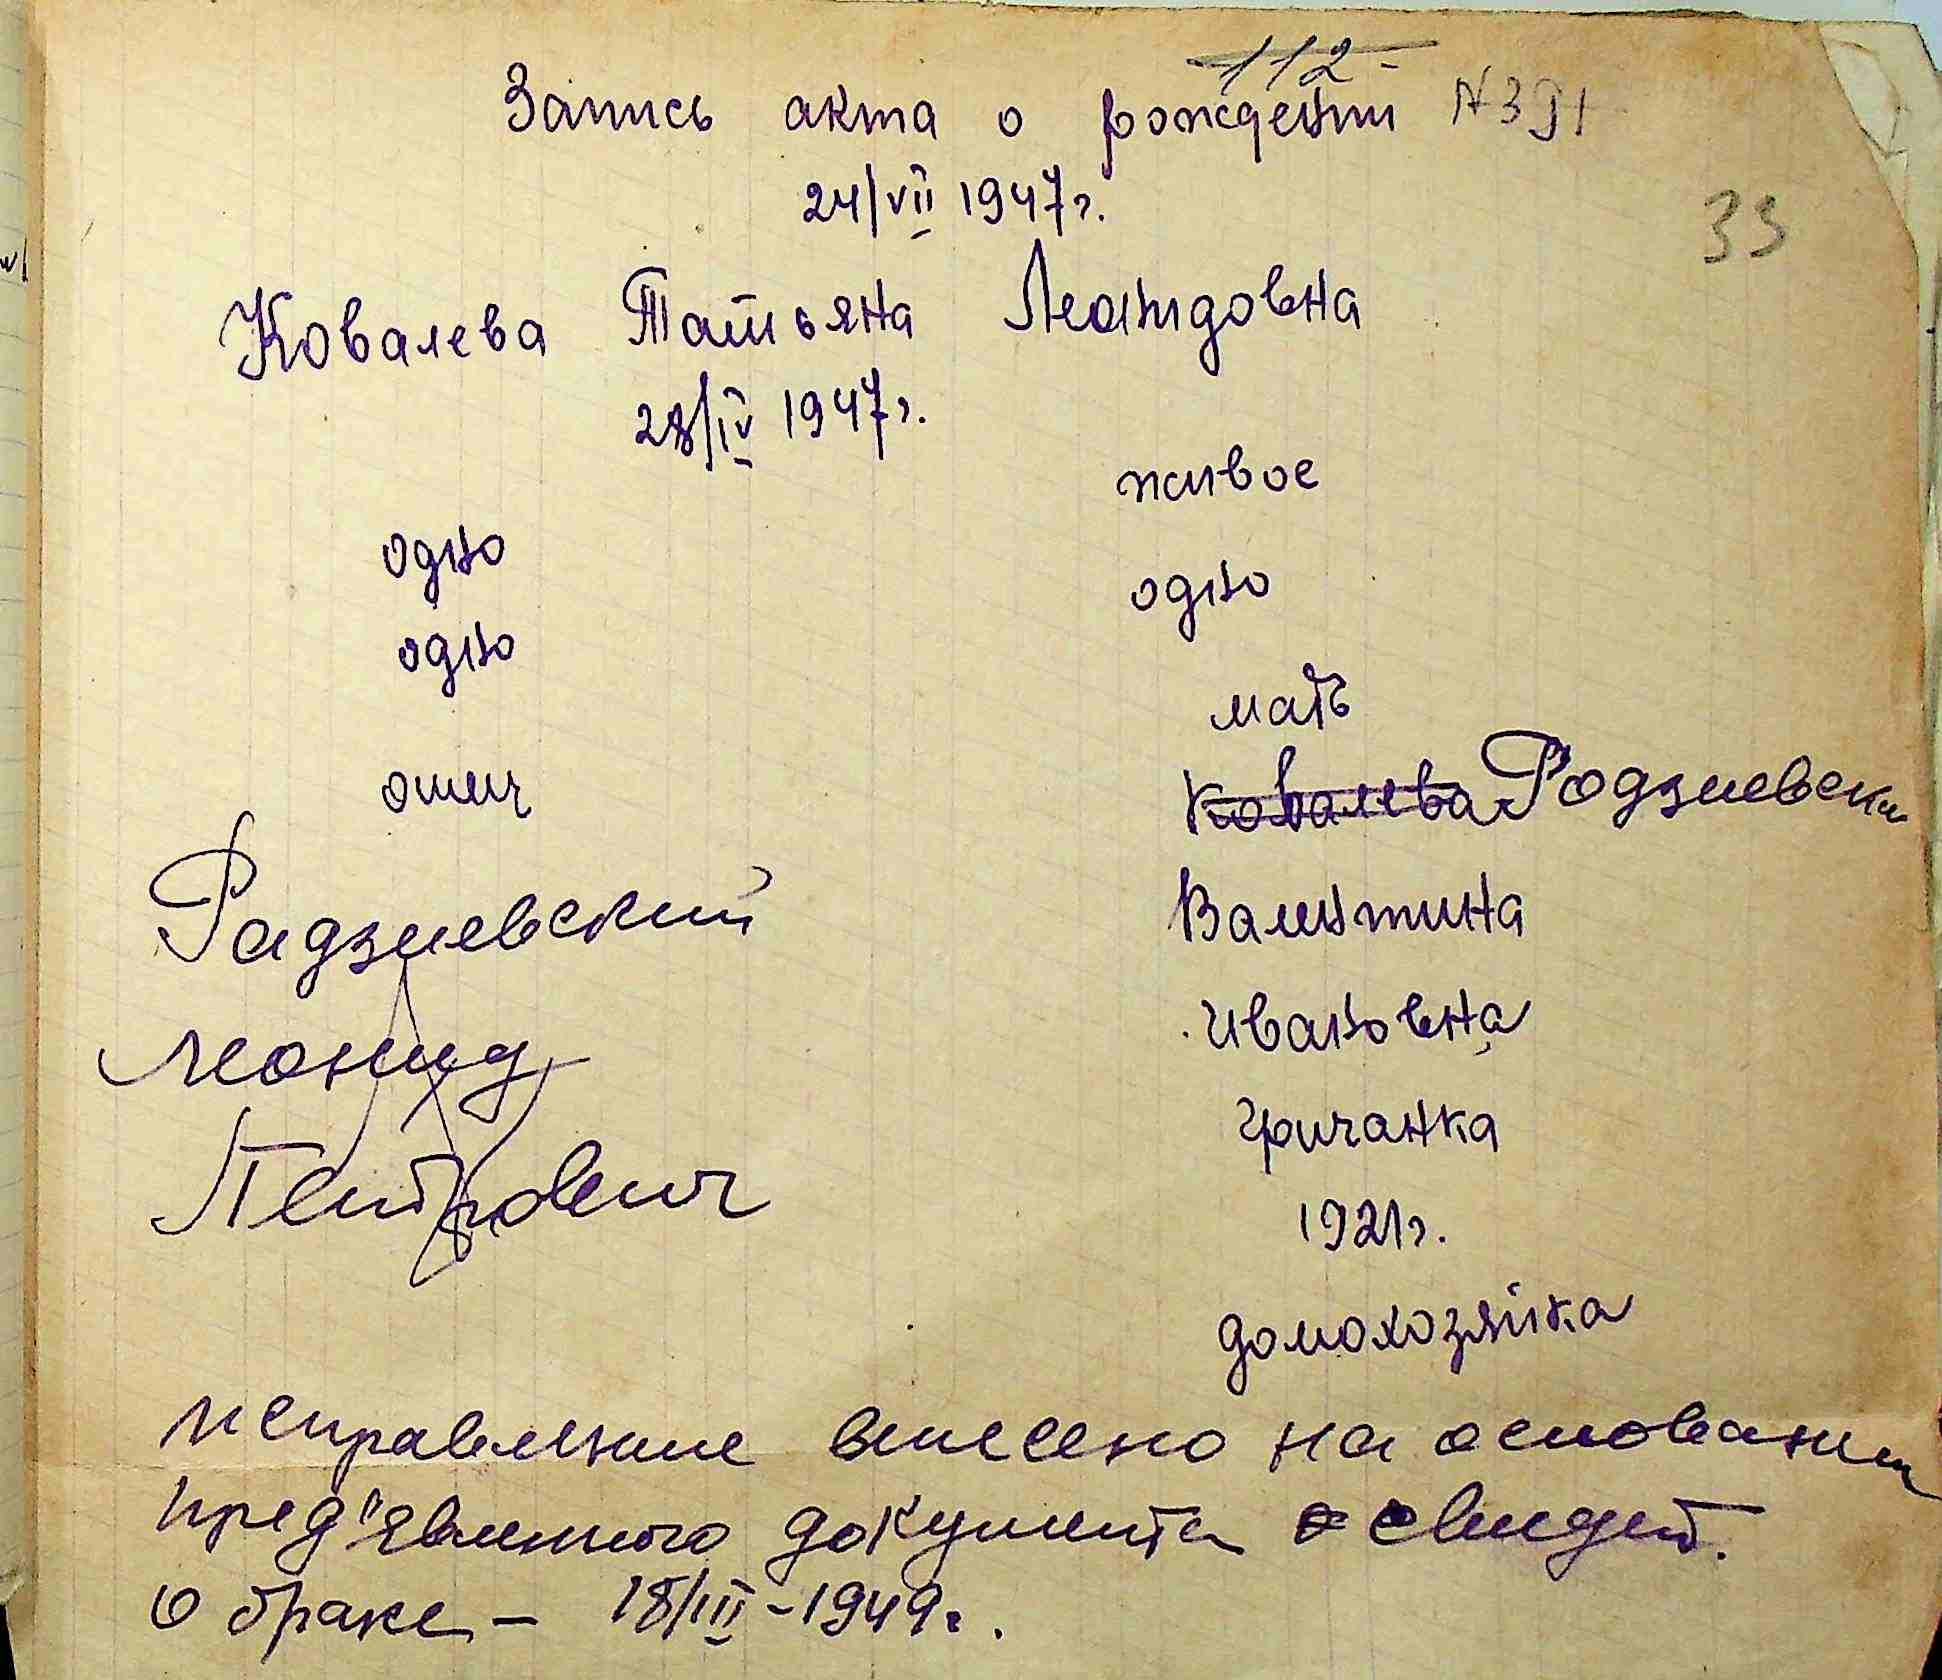 112
Запись акта о рождении N 391
24/VII 1947г.
33
Ковалева Татьяна Леонидовна
28/IV 1947г.
живое
одно
одно
одно
мать
отец
Ковалева Радзиевск
Радзиевский
Валентина
Леонид
Ивановна
Петрович
Гречанка
1921г.
домохозяйка
исправление внесено на основании
пред'явленного документа свидет.
о браке – 18/III – 1949г.